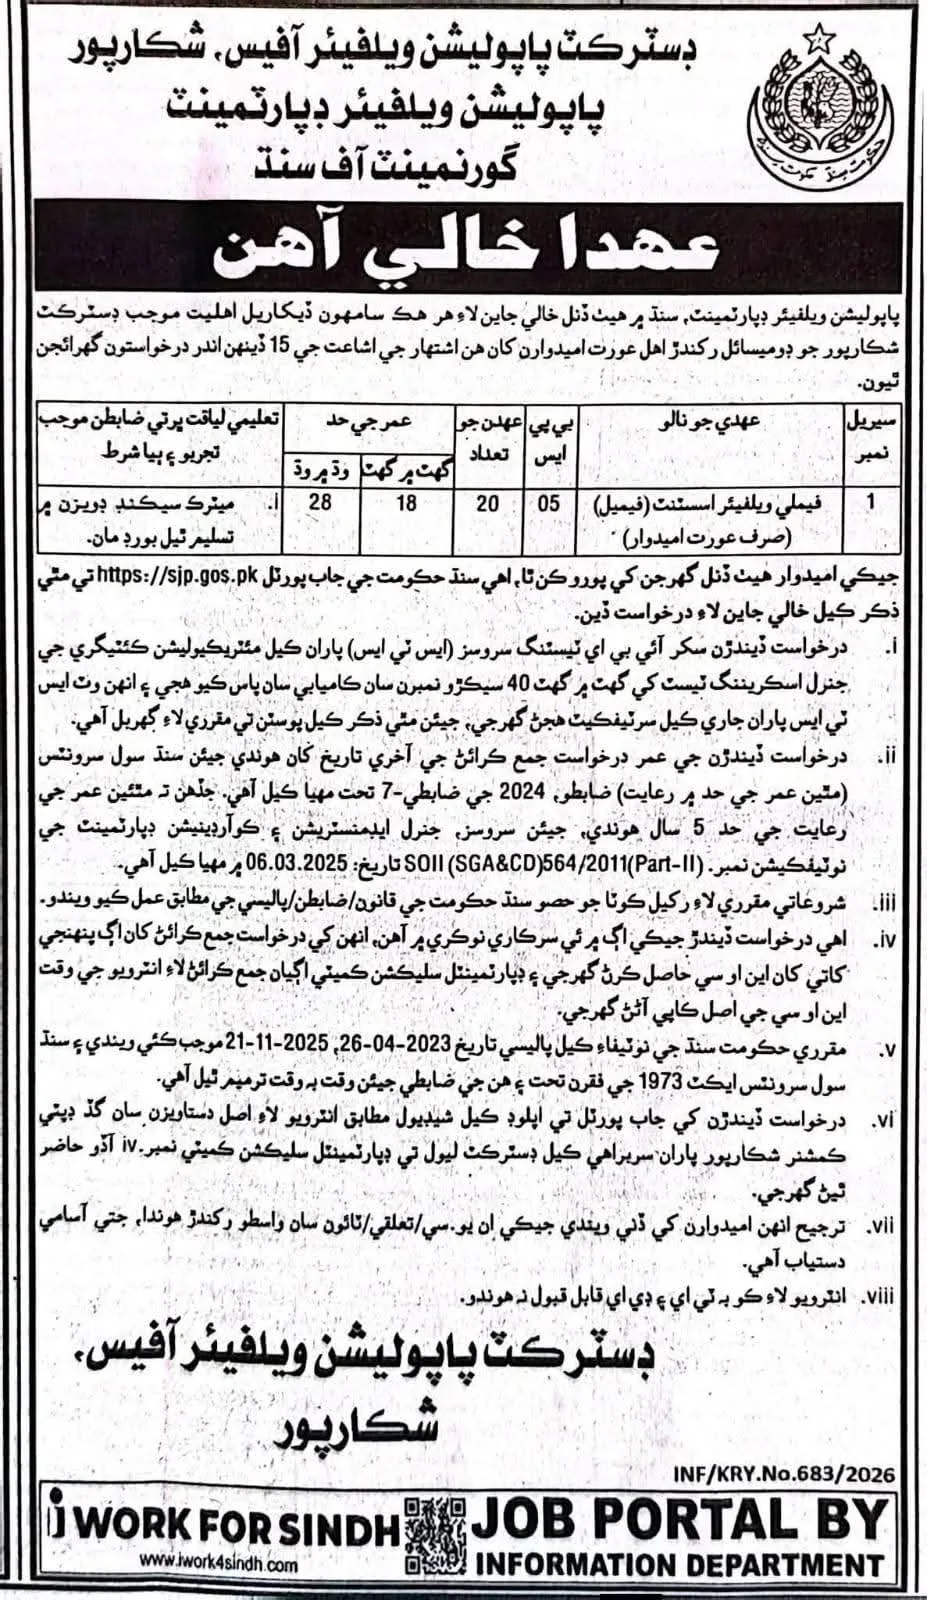 ڊسٽرڪٽ پاپوليشن ويلفيئر آفيس، شڪارپور
پاپوليشن ويلفيئر ڊپارٽمينٽ
گورنمينٽ آف سنڌ
عهدا خالي آهن
پاپوليشن ويلفيئر ڊپارٽمينٽ، سنڌ ۾ هيٺ ڏنل خالي جاين لاءِ هر هڪ سامهون ڏيکاريل اهليت موجب ڊسٽرڪٽ
شڪارپور جو ڊوميسائل رکندڙ اهل عورت اميدوارن کان هن اشتهار جي اشاعت جي 15 ڏينهن اندر درخواستون گهرائجن
ٿيون.
سيريل نمبر
عهدي جو نالو
بي پي ايس
عهدن جو تعداد
عمر جي حد
گهٽ ۾ گهٽ
وڌ ۾ وڌ
تعليمي لياقت ڀرتي ضابطن موجب تجربو ۽ ٻيا شرط
1
فيملي ويلفيئر اسسٽنٽ (فيميل)
(صرف عورت اميدوار)
05
20
18
28
i. ميٽرڪ سيڪنڊ ڊويزن ۾
تسليم ٿيل بورڊ مان.
جيڪي اميدوار هيٺ ڏنل گهرجن کي پورو ڪن ٿا، اهي سنڌ حڪومت جي جاب پورٽل https://sjp.gos.pk تي مٿي
ذڪر ڪيل خالي جاين لاءِ درخواست ڏين.
i. درخواست ڏيندڙن سکر آئي بي اي ٽيسٽنگ سروسز (ايس ٽي ايس) پاران ڪيل مئٽريڪيوليشن ڪئٽيگري جي
جنرل اسڪريننگ ٽيسٽ کي گهٽ ۾ گهٽ 40 سيڪڙو نمبرن سان ڪاميابي سان پاس ڪيو هجي ۽ انهن وٽ ايس
ٽي ايس پاران جاري ڪيل سرٽيفڪيٽ هجڻ گهرجي، جيئن مٿي ذڪر ڪيل پوسٽن تي مقرري لاءِ گهربل آهي.
ii. درخواست ڏيندڙن جي عمر درخواست جمع ڪرائڻ جي آخري تاريخ کان هوندي جيئن سنڌ سول سرونٽس
(مٿين عمر جي حد ۾ رعايت) ضابطو، 2024 جي ضابطي-7 تحت مهيا ڪيل آهي. جڏهن ته مٿئين عمر جي
رعايت جي حد 5 سال هوندي، جيئن سروسز، جنرل ايڊمنسٽريشن ۽ ڪوآرڊينيشن ڊپارٽمينٽ جي
نوٽيفڪيشن نمبر. SOII (SGA&CD)564/2011(Part-II) تاريخ: 06.03.2025 ۾ مهيا ڪيل آهي.
iii. شروعاتي مقرري لاءِ رکيل ڪوٽا جو حصو سنڌ حڪومت جي قانون/ضابطن/پاليسي جي مطابق عمل ڪيو ويندو.
iv. اهي درخواست ڏيندڙ جيڪي اڳ ۾ ئي سرڪاري نوڪري ۾ آهن، انهن کي درخواست جمع ڪرائڻ کان اڳ پنهنجي
کاتي کان اين او سي حاصل ڪرڻ گهرجي ۽ ڊپارٽمينٽل سليڪشن ڪميٽي اڳيان جمع ڪرائڻ لاءِ انٽرويو جي وقت
اين او سي جي اصل ڪاپي آڻڻ گهرجي.
v. مقرري حڪومت سنڌ جي نوٽيفاءِ ڪيل پاليسي تاريخ 2023-04-26، 2025-11-21 موجب ڪئي ويندي ۽ سنڌ
سول سرونٽس ايڪٽ 1973 جي فقرن تحت ۽ هن جي ضابطي جيئن وقت به وقت ترميم ٿيل آهي.
vi. درخواست ڏيندڙن کي جاب پورٽل تي اپلوڊ ڪيل شيڊيول مطابق انٽرويو لاءِ اصل دستاويزن سان گڏ ڊپٽي
ڪمشنر شڪارپور پاران سربراهي ڪيل ڊسٽرڪٽ ليول تي ڊپارٽمينٽل سليڪشن ڪميٽي نمبر.iv آڏو حاضر
ٿيڻ گهرجي.
vii. ترجيح انهن اميدوارن کي ڏني ويندي جيڪي ان يو.سي/تعلقي/ٽائون سان واسطو رکندڙ هوندا، جتي آسامي
دستياب آهي.
viii. انٽرويو لاءِ ڪو به ٽي اي ۽ ڊي اي قابل قبول نه هوندو.
ڊسٽرڪٽ پاپوليشن ويلفيئر آفيس،
شڪارپور
INF/KRY.No.683/2026
i WORK FOR SINDH
www.iwork4sindh.com
JOB PORTAL BY
INFORMATION DEPARTMENT